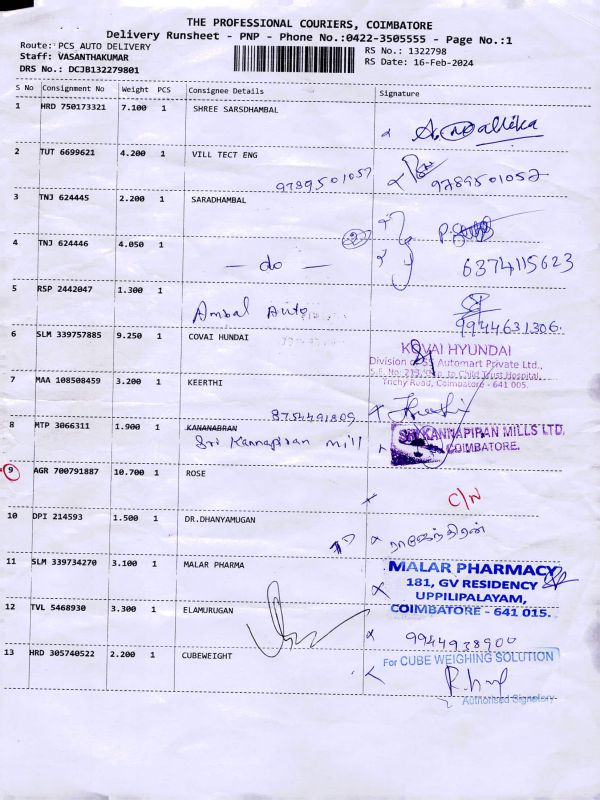 THE PROFESSIONAL COURIERS, COIMBATORE
Delivery Runsheet - PNP - Phone No.:0422-3505555 - Page No.:1
Route: PCS AUTO DELIVERY
RS No.: 1322798
Staff: VASANTHAKUMAR
RS Date: 16-Feb-2024
DRS No.: DCJB132279801
S No Consignment No Weight PCS Consignee Details Signature
1 HRD 750173321 7.100 1 SHREE SARSDHAMBAL
2 TUT 6699621 4.200 1 VILL TECT ENG
9789501057 9789501057
3 TNJ 624445 2.200 1 SARADHAMBAL
4 TNJ 624446 4.050 1
— do — 6374115623
5 RSP 2442047 1.300 1
Ambal Auto 9944631306.
6 SLM 339757885 9.250 1 COVAI HUNDAI
KOVAI HYUNDAI
Automart Private Ltd.,
Trichy Road, Coimbatore - 641 005.
7 MAA 108508459 3.200 1 KEERTHI
8754491809
8 MTP 3066311 1.900 1 KANANABRAN
Sri Kannapiran mill
SRI KANNAPIRAN MILLS LTD.
COIMBATORE.
9 AGR 700791887 10.700 1 ROSE
C/N
10 DPI 214593 1.500 1 DR.DHANYAMUGAN
ராஜேந்திரன்
11 SLM 339734270 3.100 1 MALAR PHARMA
MALAR PHARMACY
181, GV RESIDENCY
UPPILIPALAYAM,
COIMBATORE - 641 015.
12 TVL 5468930 3.300 1 ELAMURUGAN
9944938900
13 HRD 305740522 2.200 1 CUBEWEIGHT
For CUBE WEIGHING SOLUTION
Authorised Signatory